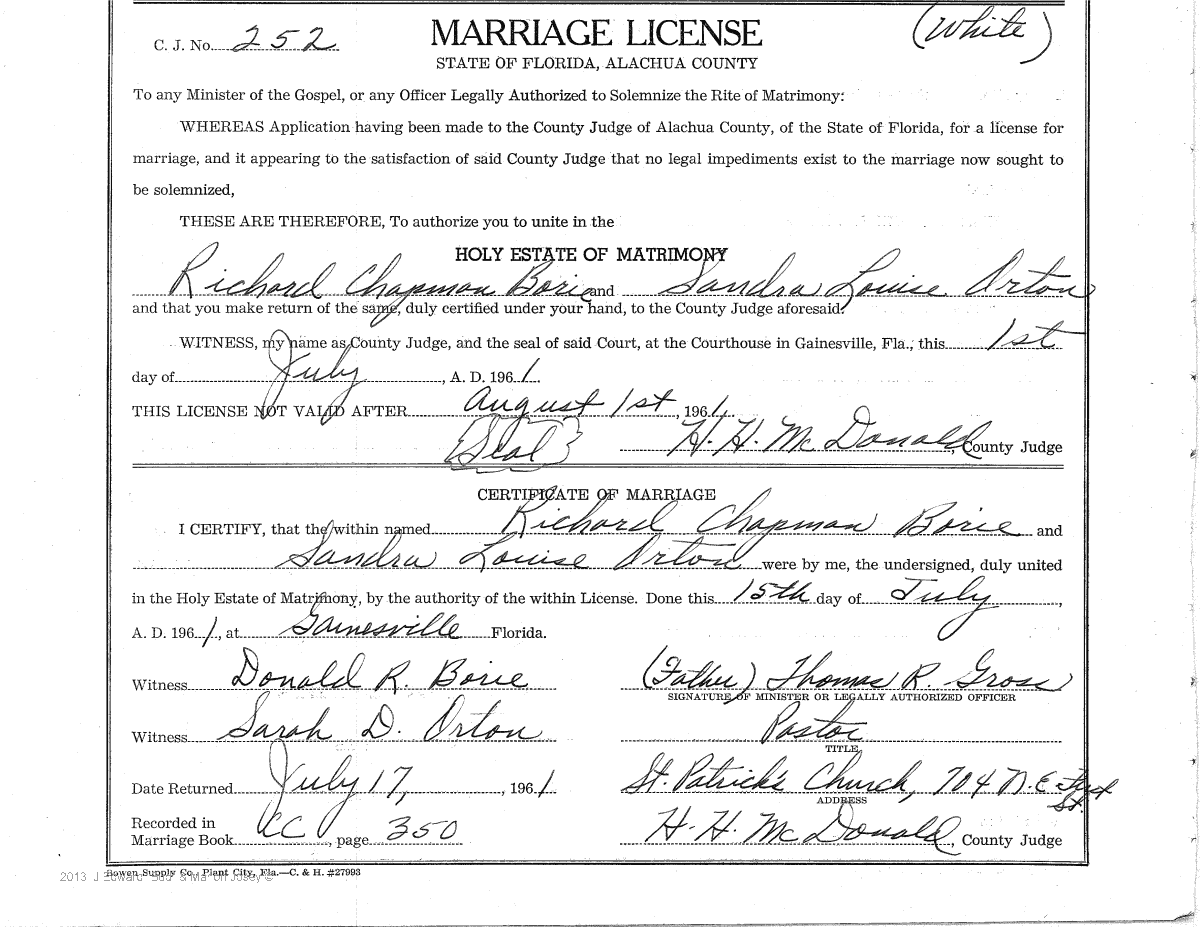 C. J. No. 252 MARRIAGE LICENSE (White)
STATE OF FLORIDA, ALACHUA COUNTY
To any Minister of the Gospel, or any Officer Legally Authorized to Solemnize the Rite of Matrimony:
WHEREAS Application having been made to the County Judge of Alachua County, of the State of Florida, for a license for
marriage, and it appearing to the satisfaction of said County Judge that no legal impediments exist to the marriage now sought to
be solemnized,
THESE ARE THEREFORE, To authorize you to unite in the
HOLY ESTATE OF MATRIMONY
Richard Chapman Borie and Sandra Louise Orton
and that you make return of the same, duly certified under your hand, to the County Judge aforesaid.
WITNESS, my name as County Judge, and the seal of said Court, at the Courthouse in Gainesville, Fla., this 1st
day of July, A. D. 1961.
THIS LICENSE NOT VALID AFTER August 1st, 1961.
{Seal} H. H. McDonald, County Judge
CERTIFICATE OF MARRIAGE
I CERTIFY, that the within named Richard Chapman Borie and
Sandra Louise Orton were by me, the undersigned, duly united
in the Holy Estate of Matrimony, by the authority of the within License. Done this 15th day of July,
A. D. 1961, at Gainesville Florida.
Witness Donald R. Borie (Father) Thomas R. Gross
SIGNATURE OF MINISTER OR LEGALLY AUTHORIZED OFFICER
Witness Sarah D. Orton Pastor
TITLE
Date Returned July 17, 1961. St. Patrick's Church, 704 N.E. First St.
ADDRESS
Recorded in
Marriage Book CC, page 350 H. H. McDonald, County Judge
Bowen Supply Co., Plant City, Fla.—C. & H. #27993
2013 J Edward